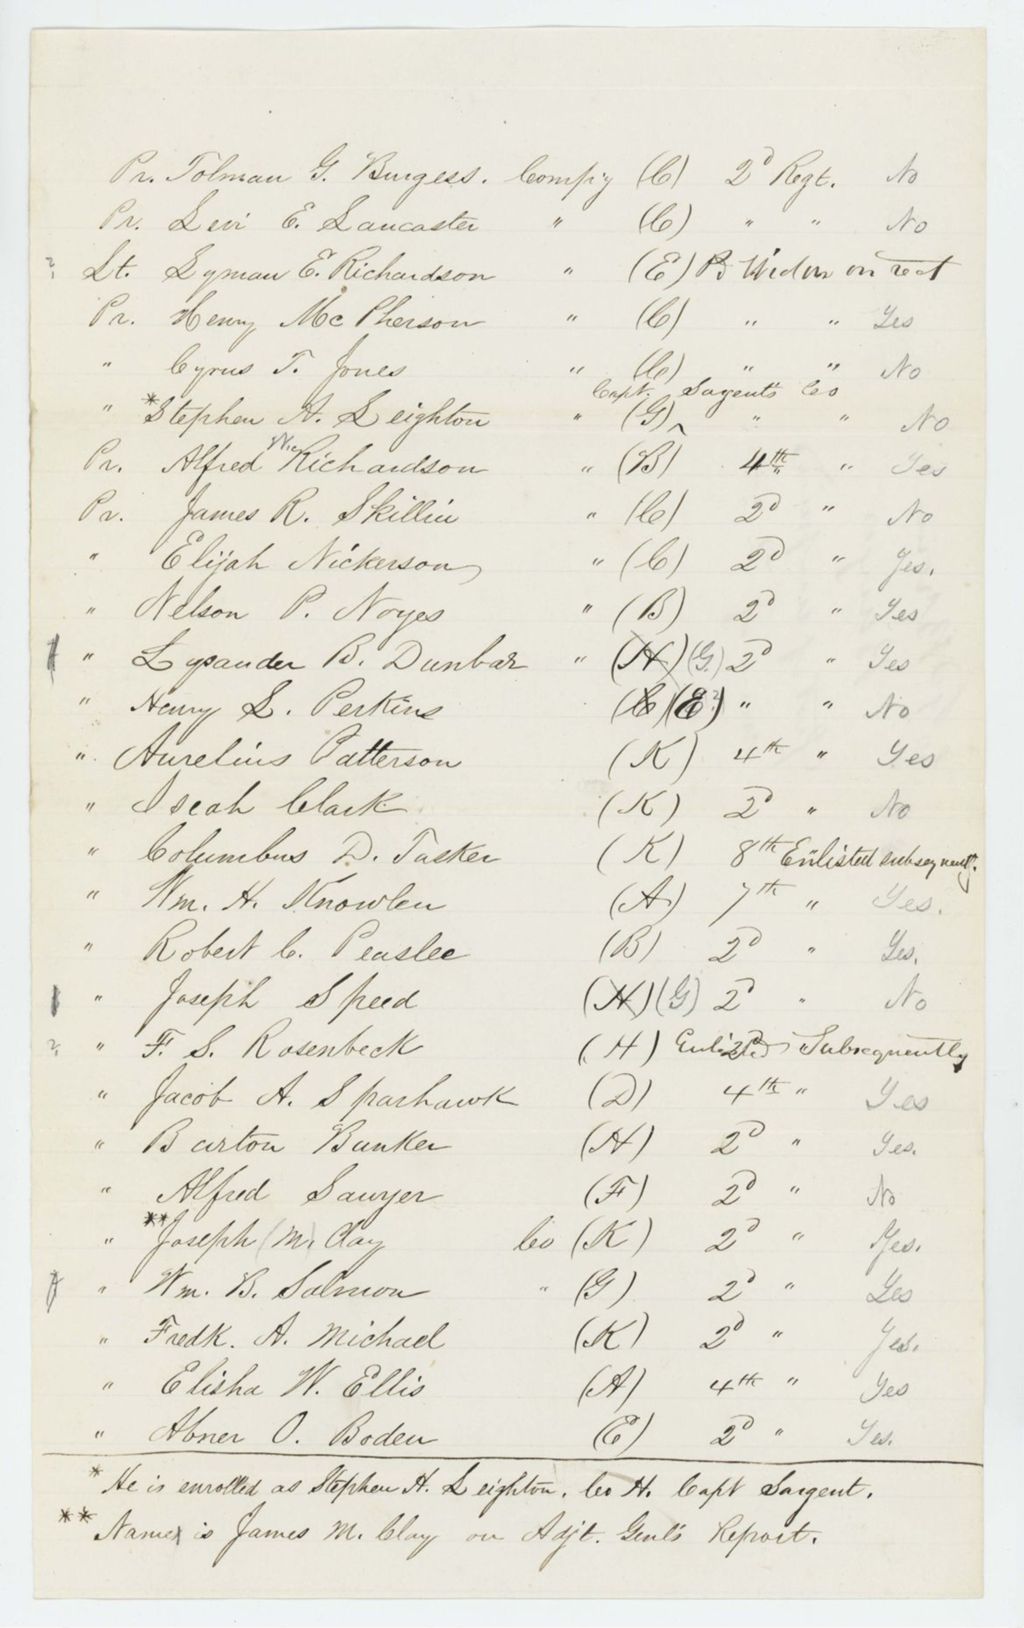 Pr. Tolman G. Burgess. Comp'y (C) 2d Regt. No
Pr. Levi E. Lancaster " (C) " " No
? Lt. Lyman E. Richardson " (E) Widow on rect
Pr. Henry McPherson " (C) " " Yes
" Cyrus T. Jones " (C) " " No
Capt. Sagents Co
" *Stephen A. Leighton " (G)^ " " No
Pr. Alfred Mc Richardson " (B) 4th " Yes
Pr. James R. Skillin " (C) 2d " No
" Elijah Nickerson " (C) 2d " Yes.
" Nelson P. Noyes " (B) 2d " Yes
" Lysander B. Dunbar " (H) (G.) 2d " Yes
" Henry L. Perkins (C) (E?) " " No
" Aurelius Patterson (K) 4th " Yes
" Iseah Clark (K) 2d " No
" Columbus D. Tasker (K) 8th Enlisted subsequently.
" Wm. H. Knowlen (A) 7th " Yes.
" Robert C. Peaslee (B) 2d " Yes.
" Joseph Speed (H) (G) 2d " No
? " F. S. Rosenbeck (H) 2d Enlistd Subsequently
" Jacob A. Sparhawk (D) 4th " Yes
" Barton Bunker (H) 2d " Yes.
" Alfred Sawyer (F) 2d " No
" **Joseph (M.) Clay Co (K) 2d " Yes.
" Wm. B. Salmon " (G) 2d " Yes
" Fredk. A. Michael (K) 2d " Yes.
" Elisha W. Ellis (A) 4th " Yes
" Abner O. Boden (E) 2d " Yes.
* He is enrolled as Stephen H. Leighton. Co H. Capt Sargent.
** Name is James M. Clay on Adjt. Genl's Report.